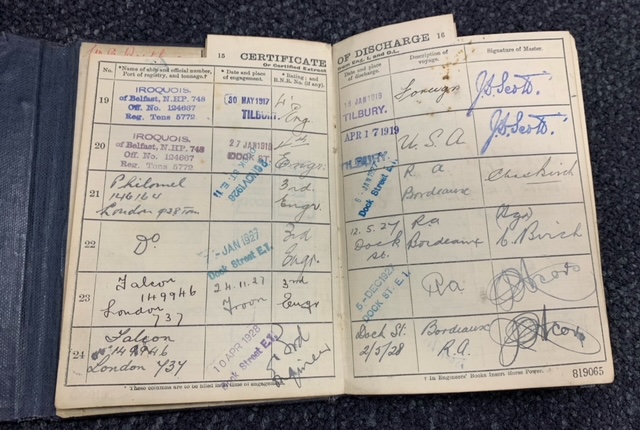 15 CERTIFICATE
Or Certified Extract
OF DISCHARGE 16
from Eng. 1, and O.L.
No.
*Name of ship and official number, Port of registry, and tonnage.†
*Date and place of engagement.
*Rating; and R.N.R. No. (if any).
Date and place of discharge.
Description of voyage.
Signature of Master.
19
IROQUOIS.
of Belfast, N.HP. 748
Off. No. 124667
Reg. Tons 5772
30 MAY 1917
TILBURY.
4th
Eng.
JAN 1919
TILBURY.
Foreign
J.S. Scott.
20
IROQUOIS.
of Belfast, N.HP. 748
Off. No. 124667
Reg. Tons 5772
27 JAN 1919
DOCK ST.
4th
Engr.
APR 17 1919
TILBURY.
U.S.A
J.S. Scott.
21
Philomel
146164
London
3rd.
Engr.
Dock Street E.1.
R.A
Bordeaux
Chas Birch
22
Do
JAN 1927
Dock Street E.1.
3rd
Engr.
12.5.27
Dock St.
R.A
Bordeaux
C. Birch
23
Falcon
149946
London
737
24.11.27
Troon
3rd
Engr
5-DEC 1927
DOCK ST. E.1.
R.A
24
Falcon
149946
London 737
10 APR 1928
Dock Street E.1.
3rd
Engineer
Dock St.
2/5/28
Bordeaux
R.A.
* These columns are to be filled in at time of engagement.
† In Engineers' Books Insert Horse Power.
819065